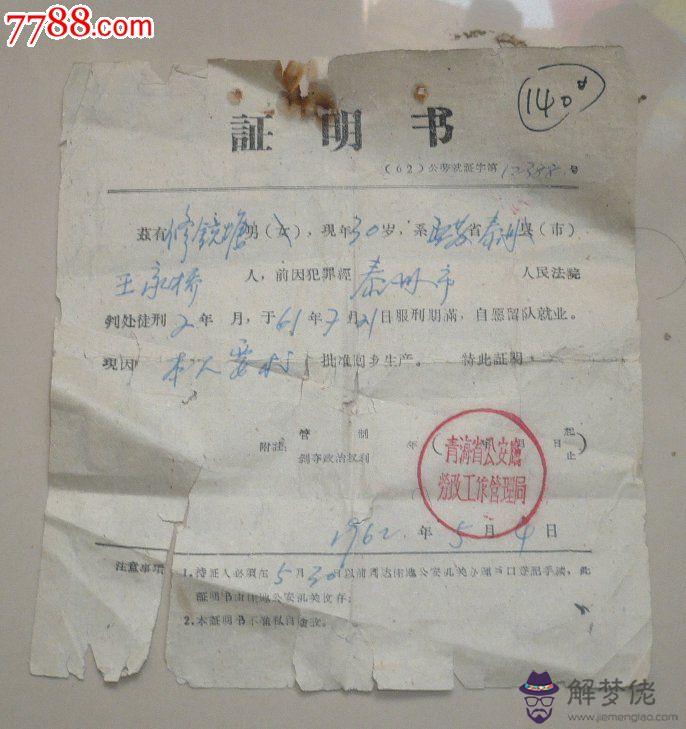 7788.com
140
証明书
(62)公劳就証字第12388号
兹有修镜塘男(女),现年30岁,系江苏省泰州县(市)
王家桥人,前因犯罪經泰州市人民法院
判处徒刑2年 月,于61年7月21日服刑期滿,自愿留队就业。
现因本人要求 批准回乡生产。特此証明
附注: 管制 剥夺政治权利 年( 年 月 日 起 止)
青海省公安廳
勞改工作管理局
1962年5月4日
注意事項:1.持証人必須在5月30日以前到达 公安机关办理戶口登記手續,此
証明书由 公安机关收存;
2.本証明书不准私自塗改。
解梦佬
www.jiemenglao.com